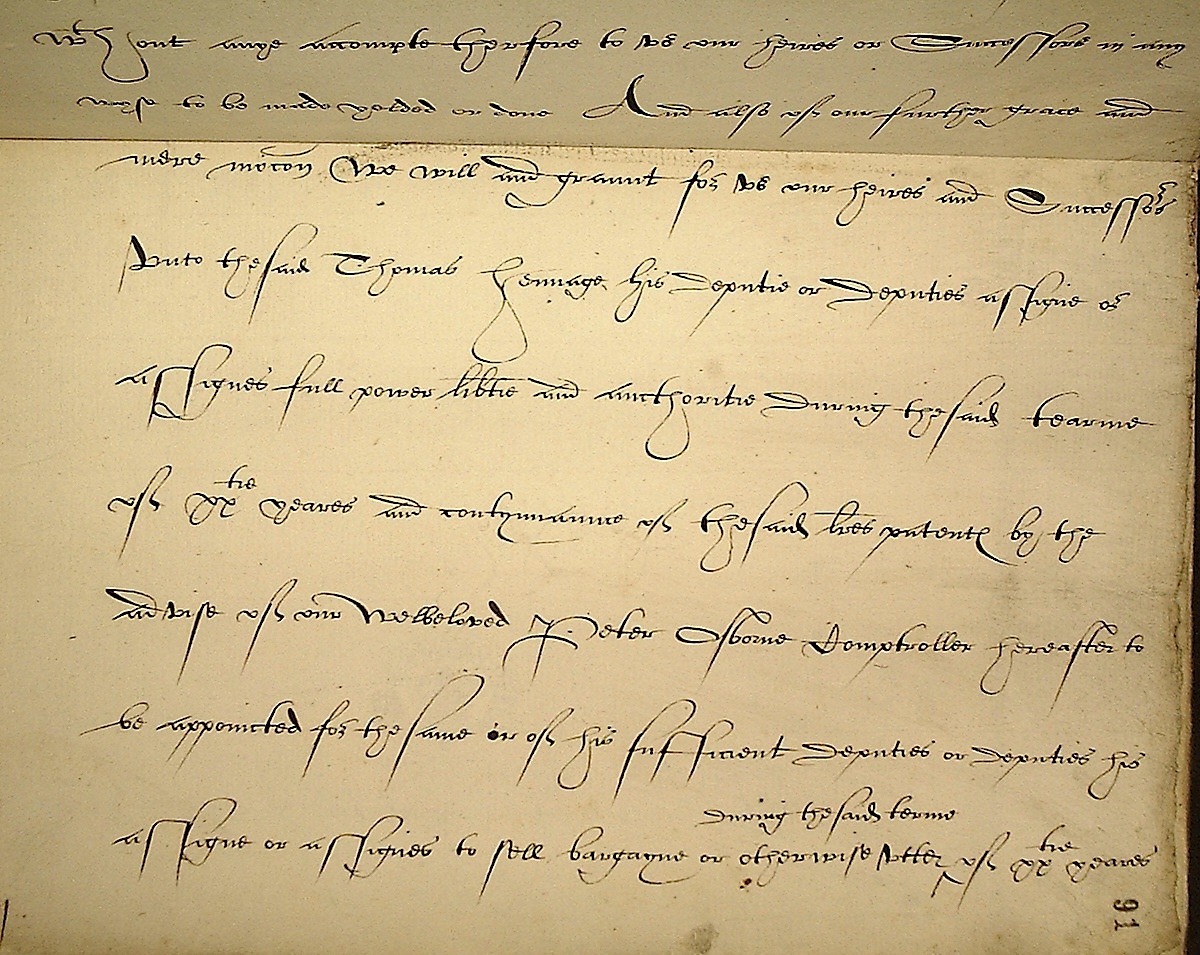 wth out anye accompte therfore to vs our heires or Successors in any
wyse to be made yelded or done And also of our further grace and
mere mocon We will and graunt for vs our heires and Successors
Vnto the said Thomas Hennage his deputie or deputies assigne or
assignes full power libtie and aucthoritie during the said tearme
of xxtie yeares and contynnaunce of the said lres patents by the
advise of our Welbeloved Peter Osborne Comptroller hereafter to
be appoincted for the same or of his sufficient deputies or deputies his
during the said terme
assigne or assignes to sell bargayne or otherwise vtter of xxtie yeares
91